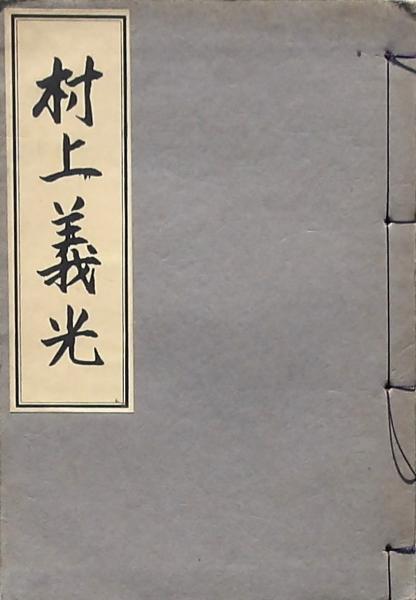 村上義光